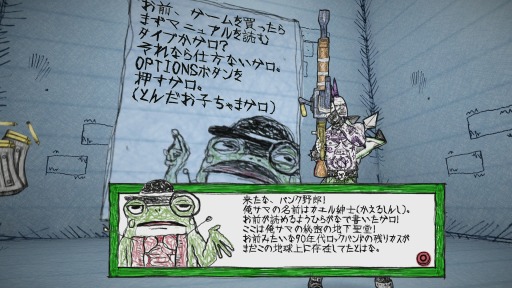 お前、ゲームを買ったら
まずマニュアルを読む
タイプかゲロ?
それなら仕方ないゲロ。
OPTIONSボタンを
押すゲロ。
(とんだお子ちゃまゲロ)
来たな、パンク野郎!
俺サマの名前はカエル紳士(かえるしんし)。
お前が読めるようひらがなで書いたゲロ!
ここは俺サマの秘密の地下聖堂!
お前みたいな90年代ロックバンドの残りカスが
まだこの地球上に存在してたとはな。